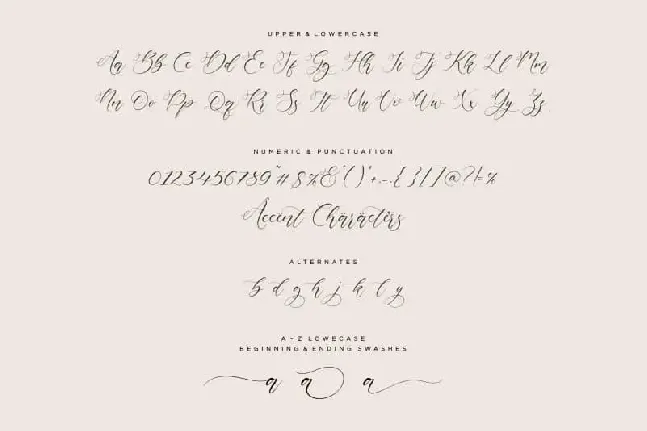 UPPER & LOWERCASE
Aa Bb Cc Dd Ee Ff Gg Hh Ii Jj Kk Ll Mm
Nn Oo Pp Qq Rr Ss Tt Uu Vv Ww Xx Yy Zz
NUMERIC & PUNCTUATION
0123456789"#$%&'()*+,-.{}[]@?!=%
Accent Characters
ALTERNATES
b d g h j k l y
A-Z LOWECASE
BEGINNING & ENDING SWASHES
a a a